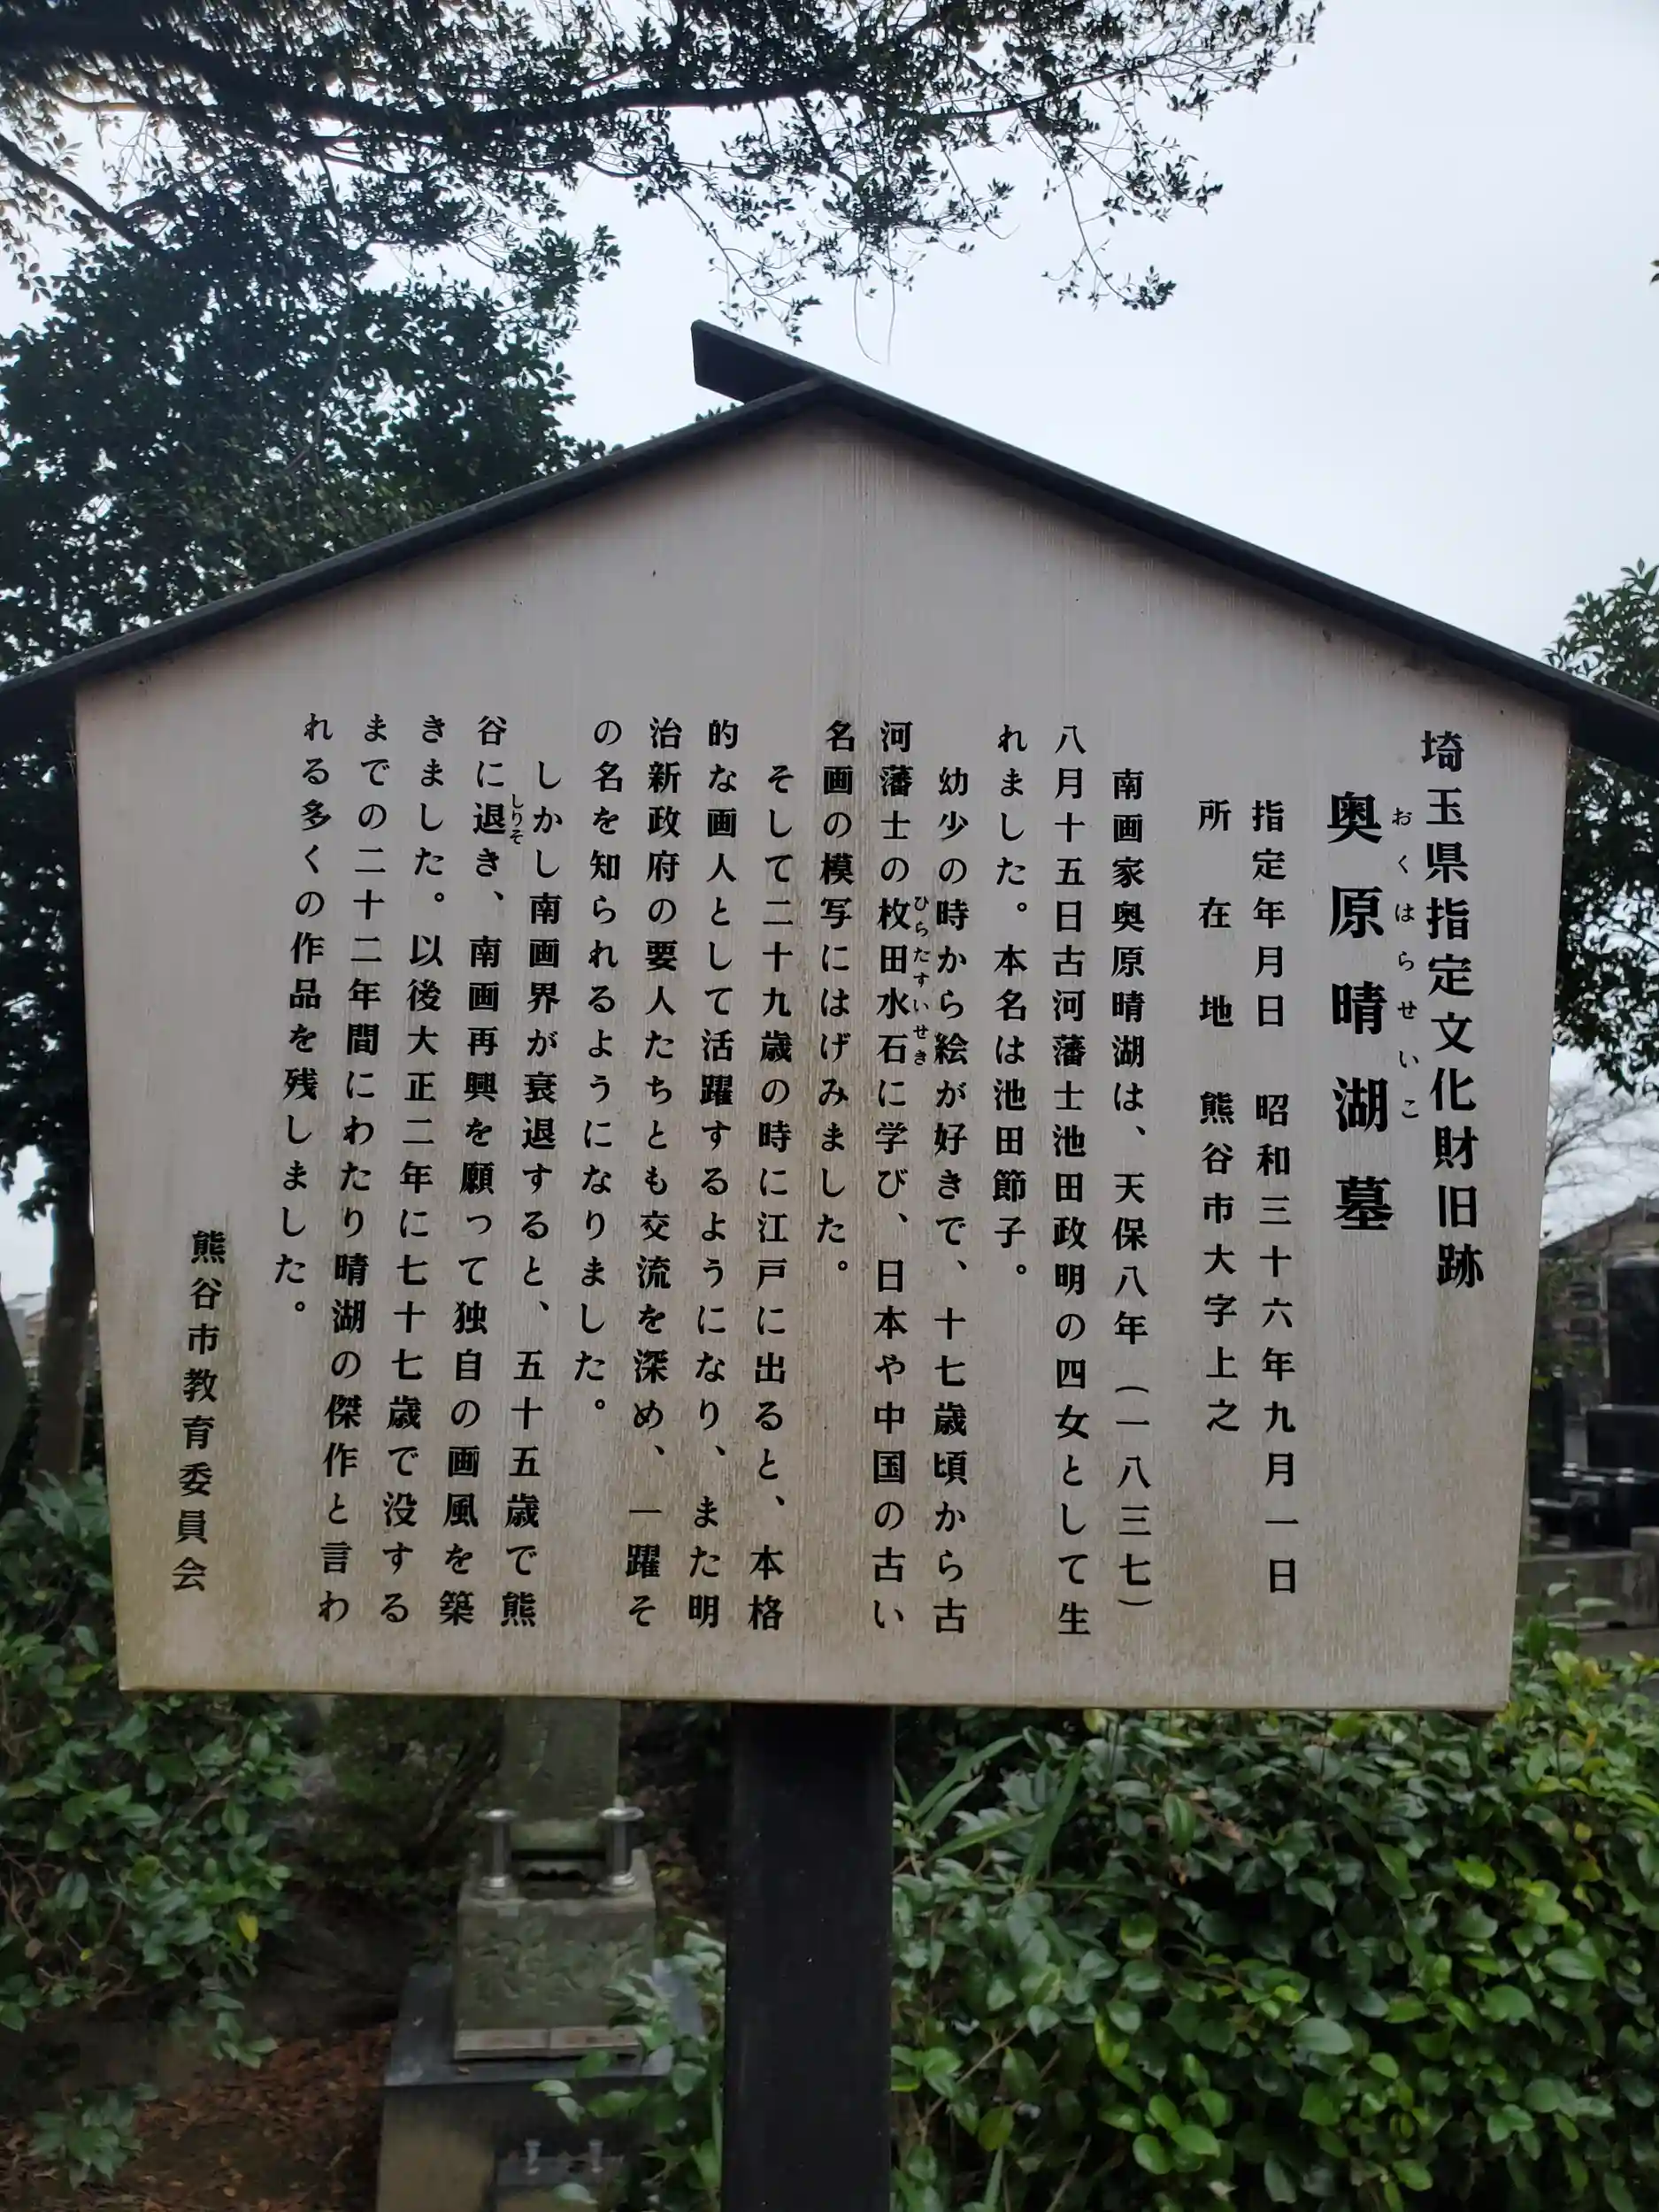 埼玉県指定文化財旧跡
奥原晴湖墓
おくはらせいこ
指定年月日　昭和三十六年九月一日
所在地　熊谷市大字上之
南画家奥原晴湖は、天保八年（一八三七）
八月十五日古河藩士池田政明の四女として生
れました。本名は池田節子。
幼少の時から絵が好きで、十七歳頃から古
河藩士の枚田水石に学び、日本や中国の古い
ひらたすいせき
名画の模写にはげみました。
そして二十九歳の時に江戸に出ると、本格
的な画人として活躍するようになり、また明
治新政府の要人たちとも交流を深め、一躍そ
の名を知られるようになりました。
しかし南画界が衰退すると、五十五歳で熊
谷に退き、南画再興を願って独自の画風を築
しりぞ
きました。以後大正二年に七十七歳で没する
までの二十二年間にわたり晴湖の傑作と言わ
れる多くの作品を残しました。
熊谷市教育委員会